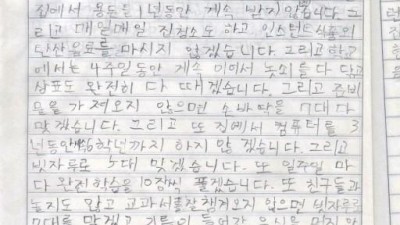 집에서 용돈을 1년동안 계속 받지 않겠습니다. 그
리고 매일매일 집청소도 하고 인스턴트식품의
탄산음료를 마시지 않겠습니다. 그리고 학교
에서는 4주일동안 계속 이어서 놋쇠를 다 닦고
상표도 완전히 다 따겠습니다. 그리고 준비
물을 가져오지 않으면 손바닥을 7대다
맞겠습니다. 그리고 또 집에서 컴퓨터를 3
년동안 6학년까지 하지 않겠습니다. 그리고
빗자루로 5대 맞겠습니다. 또 일주일 마
다 완전학습을 10장씩 풀겠습니다. 또 친구들과
놀지도 않고 교과서를 잘 챙겨오지 않으면 빗자루로
7대를 맞겠고 기름이 들어간 음식을 먹지 않